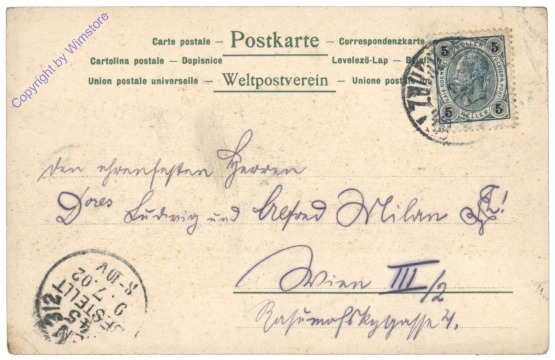 Copyright by Wimstore
Carte postale – Postkarte – Correspondenzkarte
Cartolina postale – Dopisnice Levelező-Lap –
Union postale universelle – Weltpostverein – Unione
5 5
5 HELLER 5
Den ehrenfesten Herren
Dores Ludwig und Alfred Milan
Wien III/2
Rasumofskygasse 4.
312
BESTELLT
9 7.02
8-10V